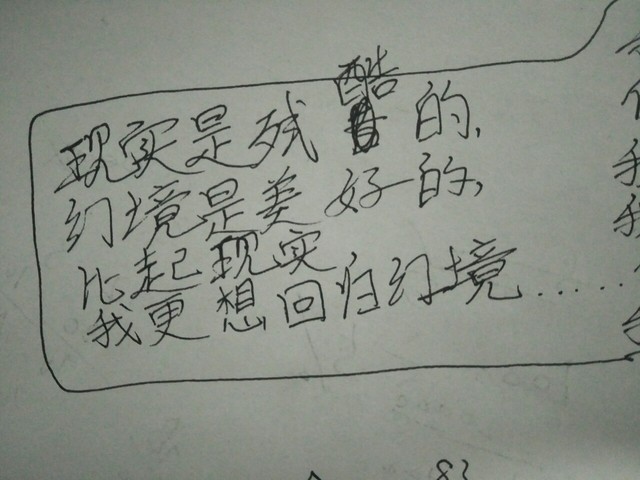 现实是残酷的,
幻境是美好的,
比起现实
我更想回归幻境……
83